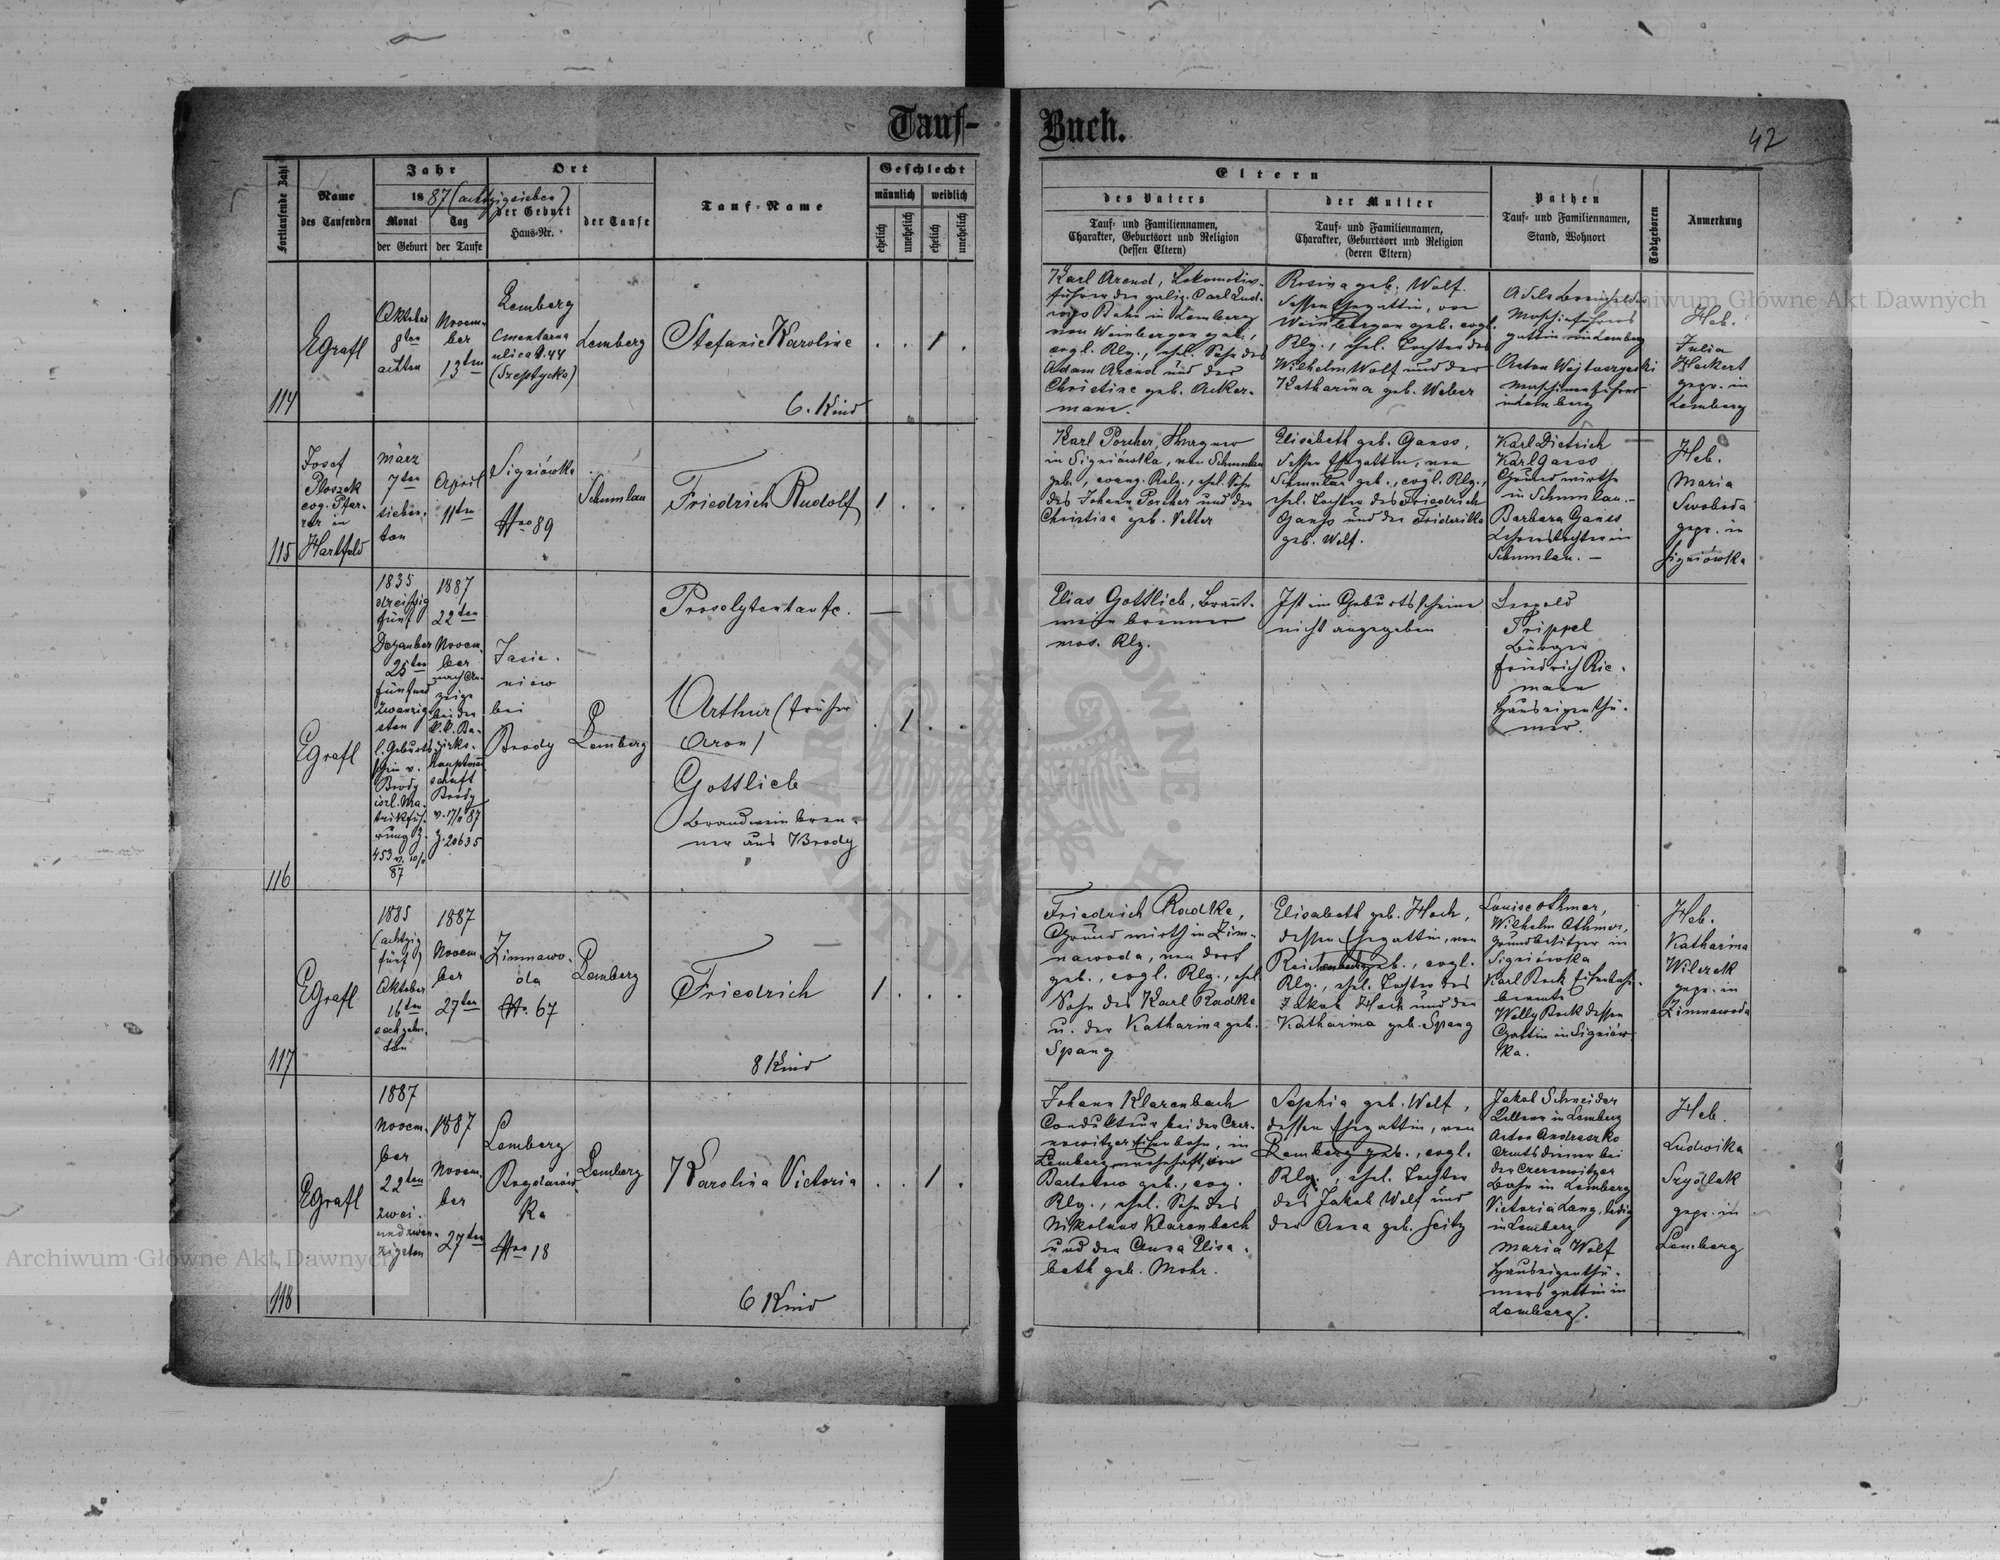 Tauf-
Buch.
42
Fortlaufende Zahl
Name
des Taufenden
Jahr
1887 (achtzigsieben)
Monat
der Geburt
Tag
der Taufe
Ort
der Geburt
Haus-Nr.
der Taufe
Tauf-Name
Geschlecht
männlich
weiblich
ehelich
unehelich
ehelich
unehelich
Eltern
des Vaters
Tauf- und Familiennamen,
Charakter, Geburtsort und Religion
(dessen Eltern)
der Mutter
Tauf- und Familiennamen,
Charakter, Geburtsort und Religion
(deren Eltern)
Pathen
Tauf- und Familiennamen,
Stand, Wohnort
Todtgeboren
Anmerkung
114
EGrafl
Oktober
8ten
achten
Novem-
ber
13ten
Lemberg
Cmentarna
ulica N. 44
(Szeptycka)
Lemberg
Stefanie Karoline
6. Kind
. . 1 .
Karl Arend, Lokomotiv-
führer der galiz. Carl Lud-
wigs Bahn in Lemberg
von Weinbergen geb.,
evgl. Rlg., ehl. Sohn des
Adam Arend und der
Christine geb. Acker-
mann.
Rosina geb. Wolf
dessen Ehegattin, von
Weinbergen geb. evgl.
Rlg., ehel. Tochter des
Wilhelm Wolf und der
Katharina geb. Weber
Adele
Maschinführers
gattin in Lemberg
Anton
Maschinenführer
in Lemberg
Heb.
Julia
Heckert
gepr. in
Lemberg
115
Josef
Ploszek
evg. Pfar-
rer in
Hartfeld
März
7ten
sieben-
ten
April
11ten
Signiówka
Nro 89
Schumlau
Friedrich Rudolf
1 . . .
Karl Porcher,
in Signiówka, von Schumlau
geb., evang. Relg., ehel. Sohn
des Johann Porcher und der
Christina geb. Vetter
Elisabeth geb. Ganss,
dessen Ehegattin, von
Schumlau geb., evgl. Rlg.,
ehel. Tochter des Friedrich
Ganss und der Friderika
geb. Wolf.
Karl Dietrich
Karl Ganss
Grundwirthe
in Schumlau. —
Barbara Ganss
Lehrerstochter in
Schumlau. —
Heb.
Maria
Swoboda
gepr. in
Signiówka
116
EGrafl
1835
dreißig
fünf
Dezember
25ten
fünfund
zwanzig-
sten
l. Geburts-
schein v.
Brody
isrl. Ma-
trikfüh-
rung Z.
453 v. 10/11
87
1887
22ten
Novem-
ber
nach An-
zeige
bei der
k. k. Be-
zirks-
hauptman
schaft
Brody
v. 17/11 87
Z. 20635
Jasie-
niow
bei
Brody
Lemberg
Proselytentaufe.
Arthur (früher
Aron)
Gottlieb
Brandweinbren-
ner aus Brody
. 1 . .
Elias Gottlieb, Brannt-
weinbrenner
mos. Rlg.
Ist im Geburtsscheine
nicht angegeben
Leopold
Trippel
Bürger
Friedrich Rie-
mann
Hauseigenthü-
mer.
117
EGrafl
1885
(achtzig
fünf)
Oktober
16ten
sechzehn-
ten
1887
Novem-
ber
27ten
Zimnawo-
da
N. 67
Lemberg
Friedrich
8 Kind
1 . . .
Friedrich Radke,
Grundwirth in Zim-
nawoda, von dort
geb., evgl. Rlg., ehel.
Sohn des Karl Radke
u. der Katharina geb.
Spang
Elisabeth geb. Hoch,
dessen Ehegattin, von
Reichenbach geb., evgl.
Rlg., ehel. Tochter des
Jakob Hoch und der
Katharina geb. Spang
Louise Othmer,
Wilhelm Othmer,
Grundbesitzer in
Signiówka
Karl Rock Eisenbahn-
beamte
Welly Rock dessen
Gattin in Signiów-
ka.
Heb.
Katharina
Wilczek
gepr. in
Zimnawoda
118
EGrafl
1887
Novem-
ber
22ten
zwei-
undzwan-
zigsten
1887
Novem-
ber
27ten
Lemberg
Bogdanów-
ka
Nro 18
Lemberg
Karolina Victoria
6 Kind
. . 1 .
Johann Klarenbach
Condukteur bei der Czer-
nowitzer Eisenbahn, in
Lemberg wohnhaft, von
geb., evg.
Rlg., ehel. Sohn des
Nikolaus Klarenbach
und der Anna Elisa-
beth geb. Mohr.
Sophia geb. Wolf,
dessen Ehegattin, von
Lemberg geb., evgl.
Rlg., ehel. Tochter
des Jakob Wolf und
der Anna geb. Seitz
Jakob Schneider
Kellner in Lemberg
Anton Andraszko
Amtsdiener bei
der Czernowitzer
Bahn in Lemberg
Victoria Lang, ledig
in Lemberg
Maria Wolf
Hauseigenthü-
mers gattin in
Lemberg.
Heb.
Ludwika
Szydlak
gepr. in
Lemberg
Archiwum Główne Akt Dawnych
Archiwum Główne Akt Dawnych